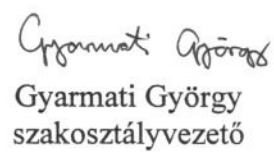 Gyarmati György
Gyarmati György
szakosztályvezető